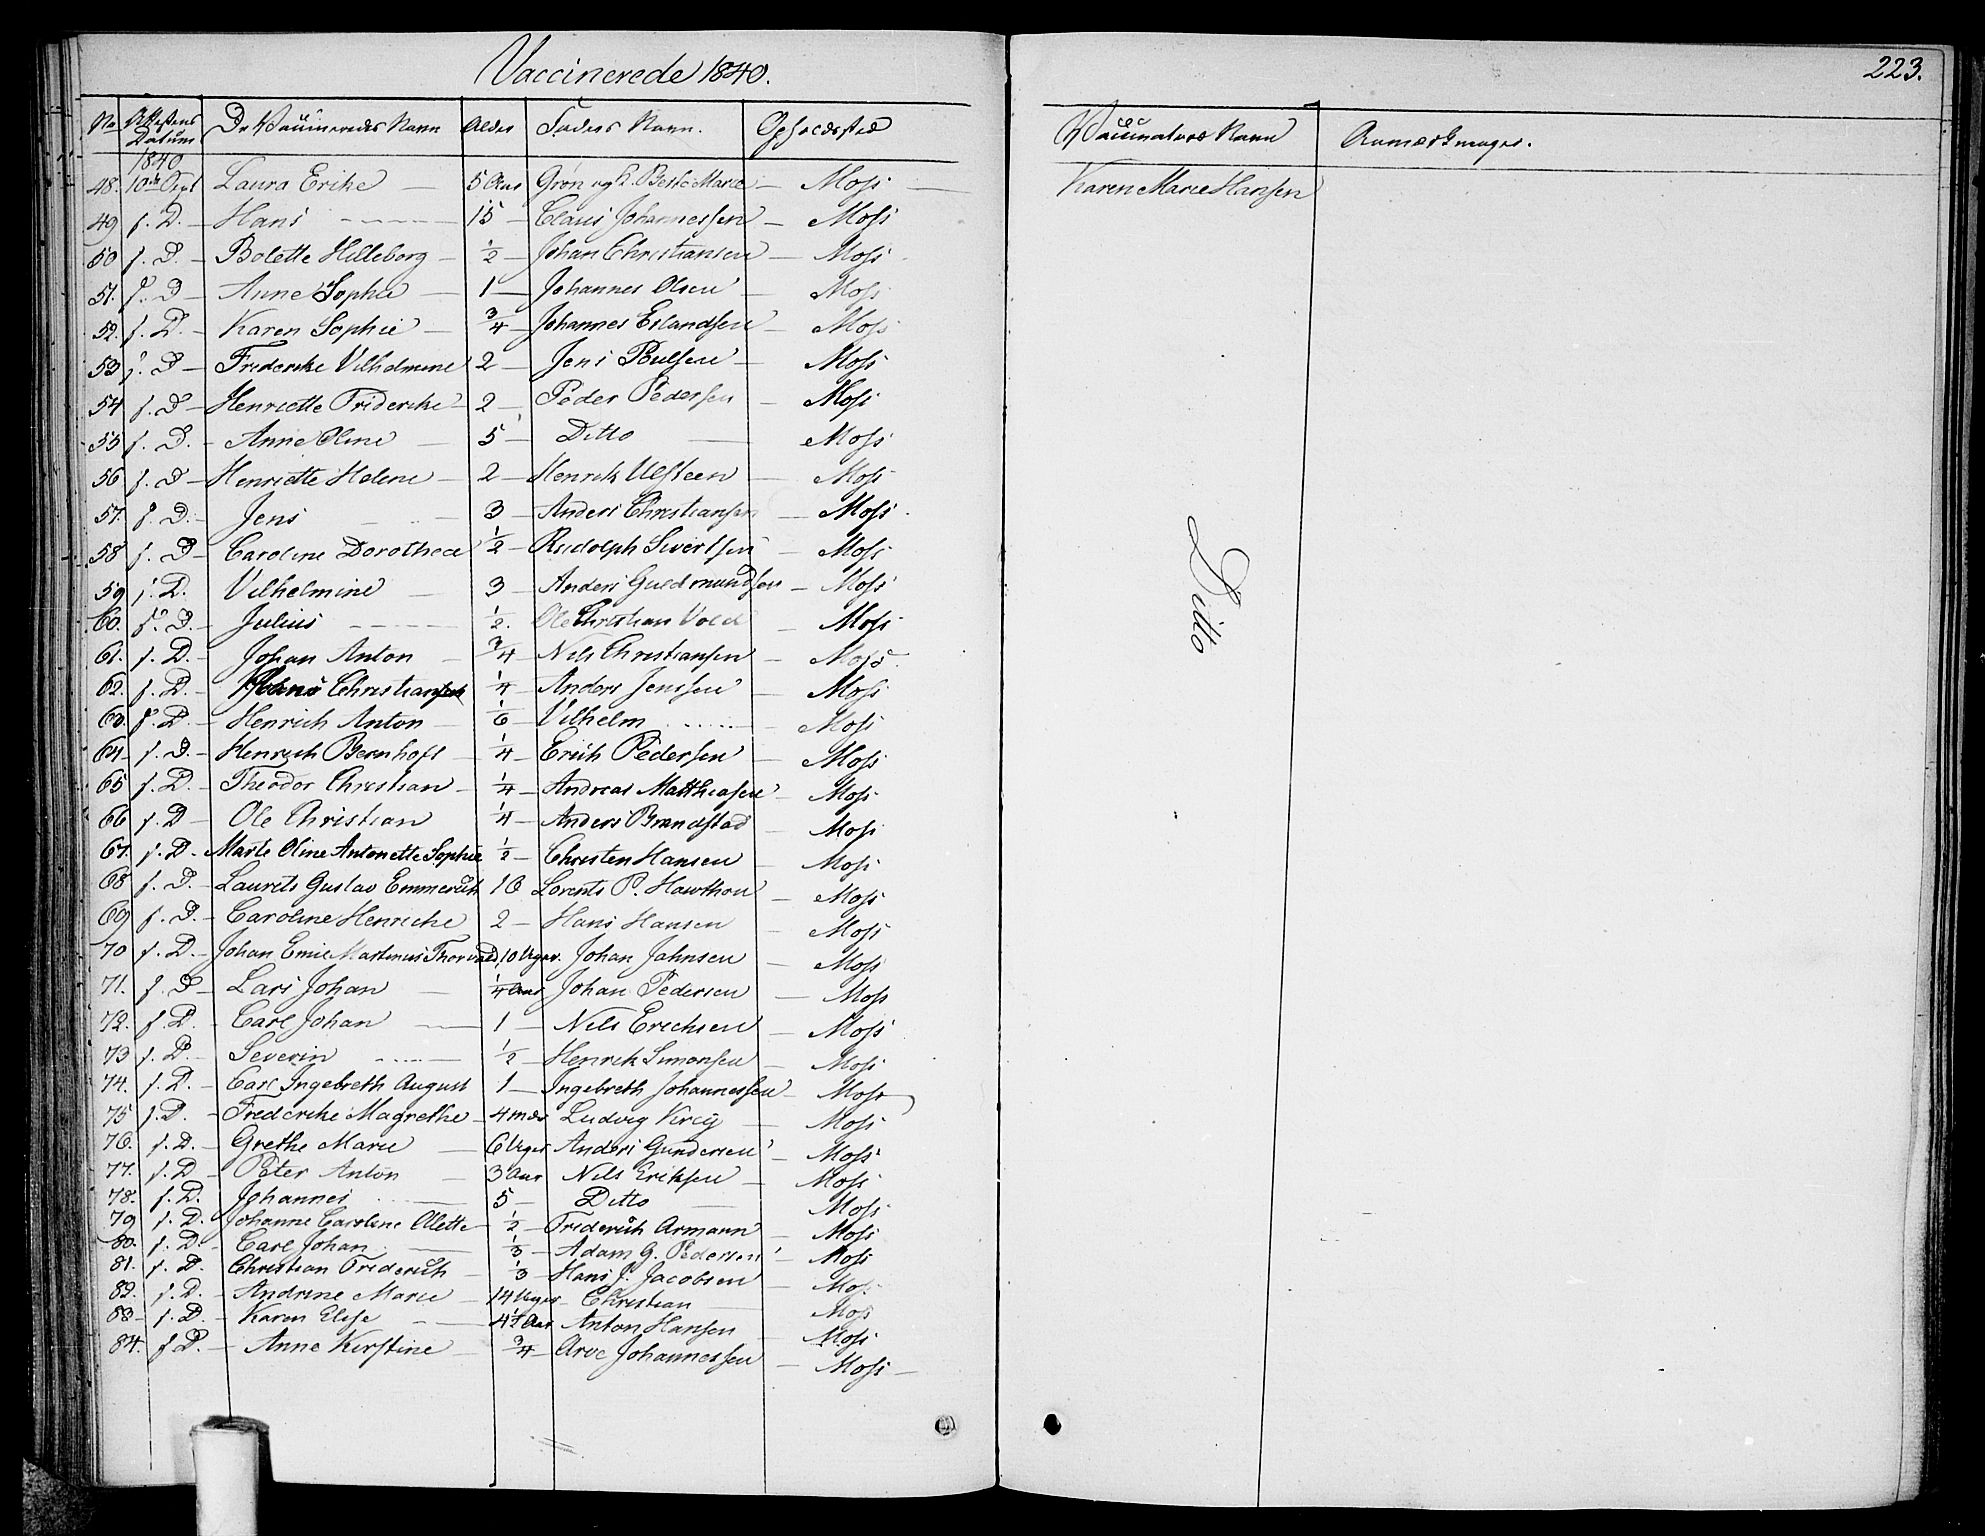 Vaccinerede 1840.
223.
No Attestens Datum De Vaccineredes Navn Alder Faders Navn. Opholdssted Vaccinatørs Navn Anmærkninger.
1840
48. 10de Sept Laura Erike — 5 Aar Grøn og Marie — Moss — Karen Marie Hansen
49 f. D. — Hans — 15 — Claus Johannessen — Moss
50 f. D. — Bolette Hilleborg — 1/2 — Johan Christiansen — Moss
51. f. D — Anne Sophie — 1 — Johannes Olsen — Moss
52. f. D. — Karen Sophie — 3/4 — Johannes Erlandsen — Moss
53 f. D — Friderike Vilhelmine 2 — Jens Poulsen — Moss
54 f. D — Henriette Friderike — 2 — Peder Pedersen — Moss
55 f. D. — Anne Oline — 5 — Ditto — Moss
56 f. D — Henriette Helene — 2 — Henrik Ulsteen — Moss
57. f. D. — Jens — 3 — Anders Christiansen — Moss
58 f. D — Caroline Dorothea 1/2 — Rudolph Sivertsen — Moss
59 f. D. Vilhelmine — 3 — Anders Guldmundsen — Moss
60. f. D. — Julius — 1/2. Ole Christian Vold — Moss
61. f. D. — Johan Anton — 3/4 — Nils Christiansen — Moss.
62. f. D. — Christian 1/4 — Anders Jenssen — Moss
63. f. D — Henrich Anton — 1/6 — Vilhelm — Moss
64 f. D. — Henrich Bernhoft — 1/4 — Erich Pedersen — Moss
65 f. D. — Theodor Christian — 1/4 — Andreas Matthiasen — Moss
66 f. D — Ole Christian 1/4 — Anders Brandstad — Moss
67. f. D — Marte Oline Antonette Sophie 1/2 — Christen Hansen — Moss
68 f. D. — Laurits Gustav Emmerich 10 Lorents P. Hawthon — Moss
69 f. D. — Caroline Henriche 2 — Hans Hansen — Moss
70 f. D. — Johan Emil Martinus Thorvald, 10 Uger. Johan Jahnsen — Moss
71. f. D — Lars Johan — 1/4 Aar Johan Pedersen — Moss
72. f. D. — Carl Johan — 1 — Nils Erichsen — Moss
73 f. D. — Severin — 1/2 — Henrik Simonsen — Moss
74. f. D. — Carl Ingebreth August 1 — Ingebreth Johannessen — Moss
75 f. D. — Frederike Magrethe — 4 mdr Ludvig — Moss
76. f. D. — Grethe Marie — 6 Uger Anders Gundersen — Moss
77. f. D — Peter Anton — 3 Aar Nils Eriksen — Moss
78. f. D. Johannes — 5 — Ditto — Moss
79 f. D. Johanne Caroline Olette — 1/2 — Friderich Armann — Moss
80. f. D. — Carl Johan — 1/3 — Adam G. Pedersen — Moss
81. f. D. Christian Friderich — 1/3 — Hans J. Jacobsen — Moss
82. f. D. — Andrine Marie — 14 Uger — Christian — Moss
83 — f. D. — Karen Elise — 4 1/2 Aar Anton Hansen — Moss
84. f. D. — Anne Kirstine — 3/4 — Arve Johannessen — Moss —
Ditto